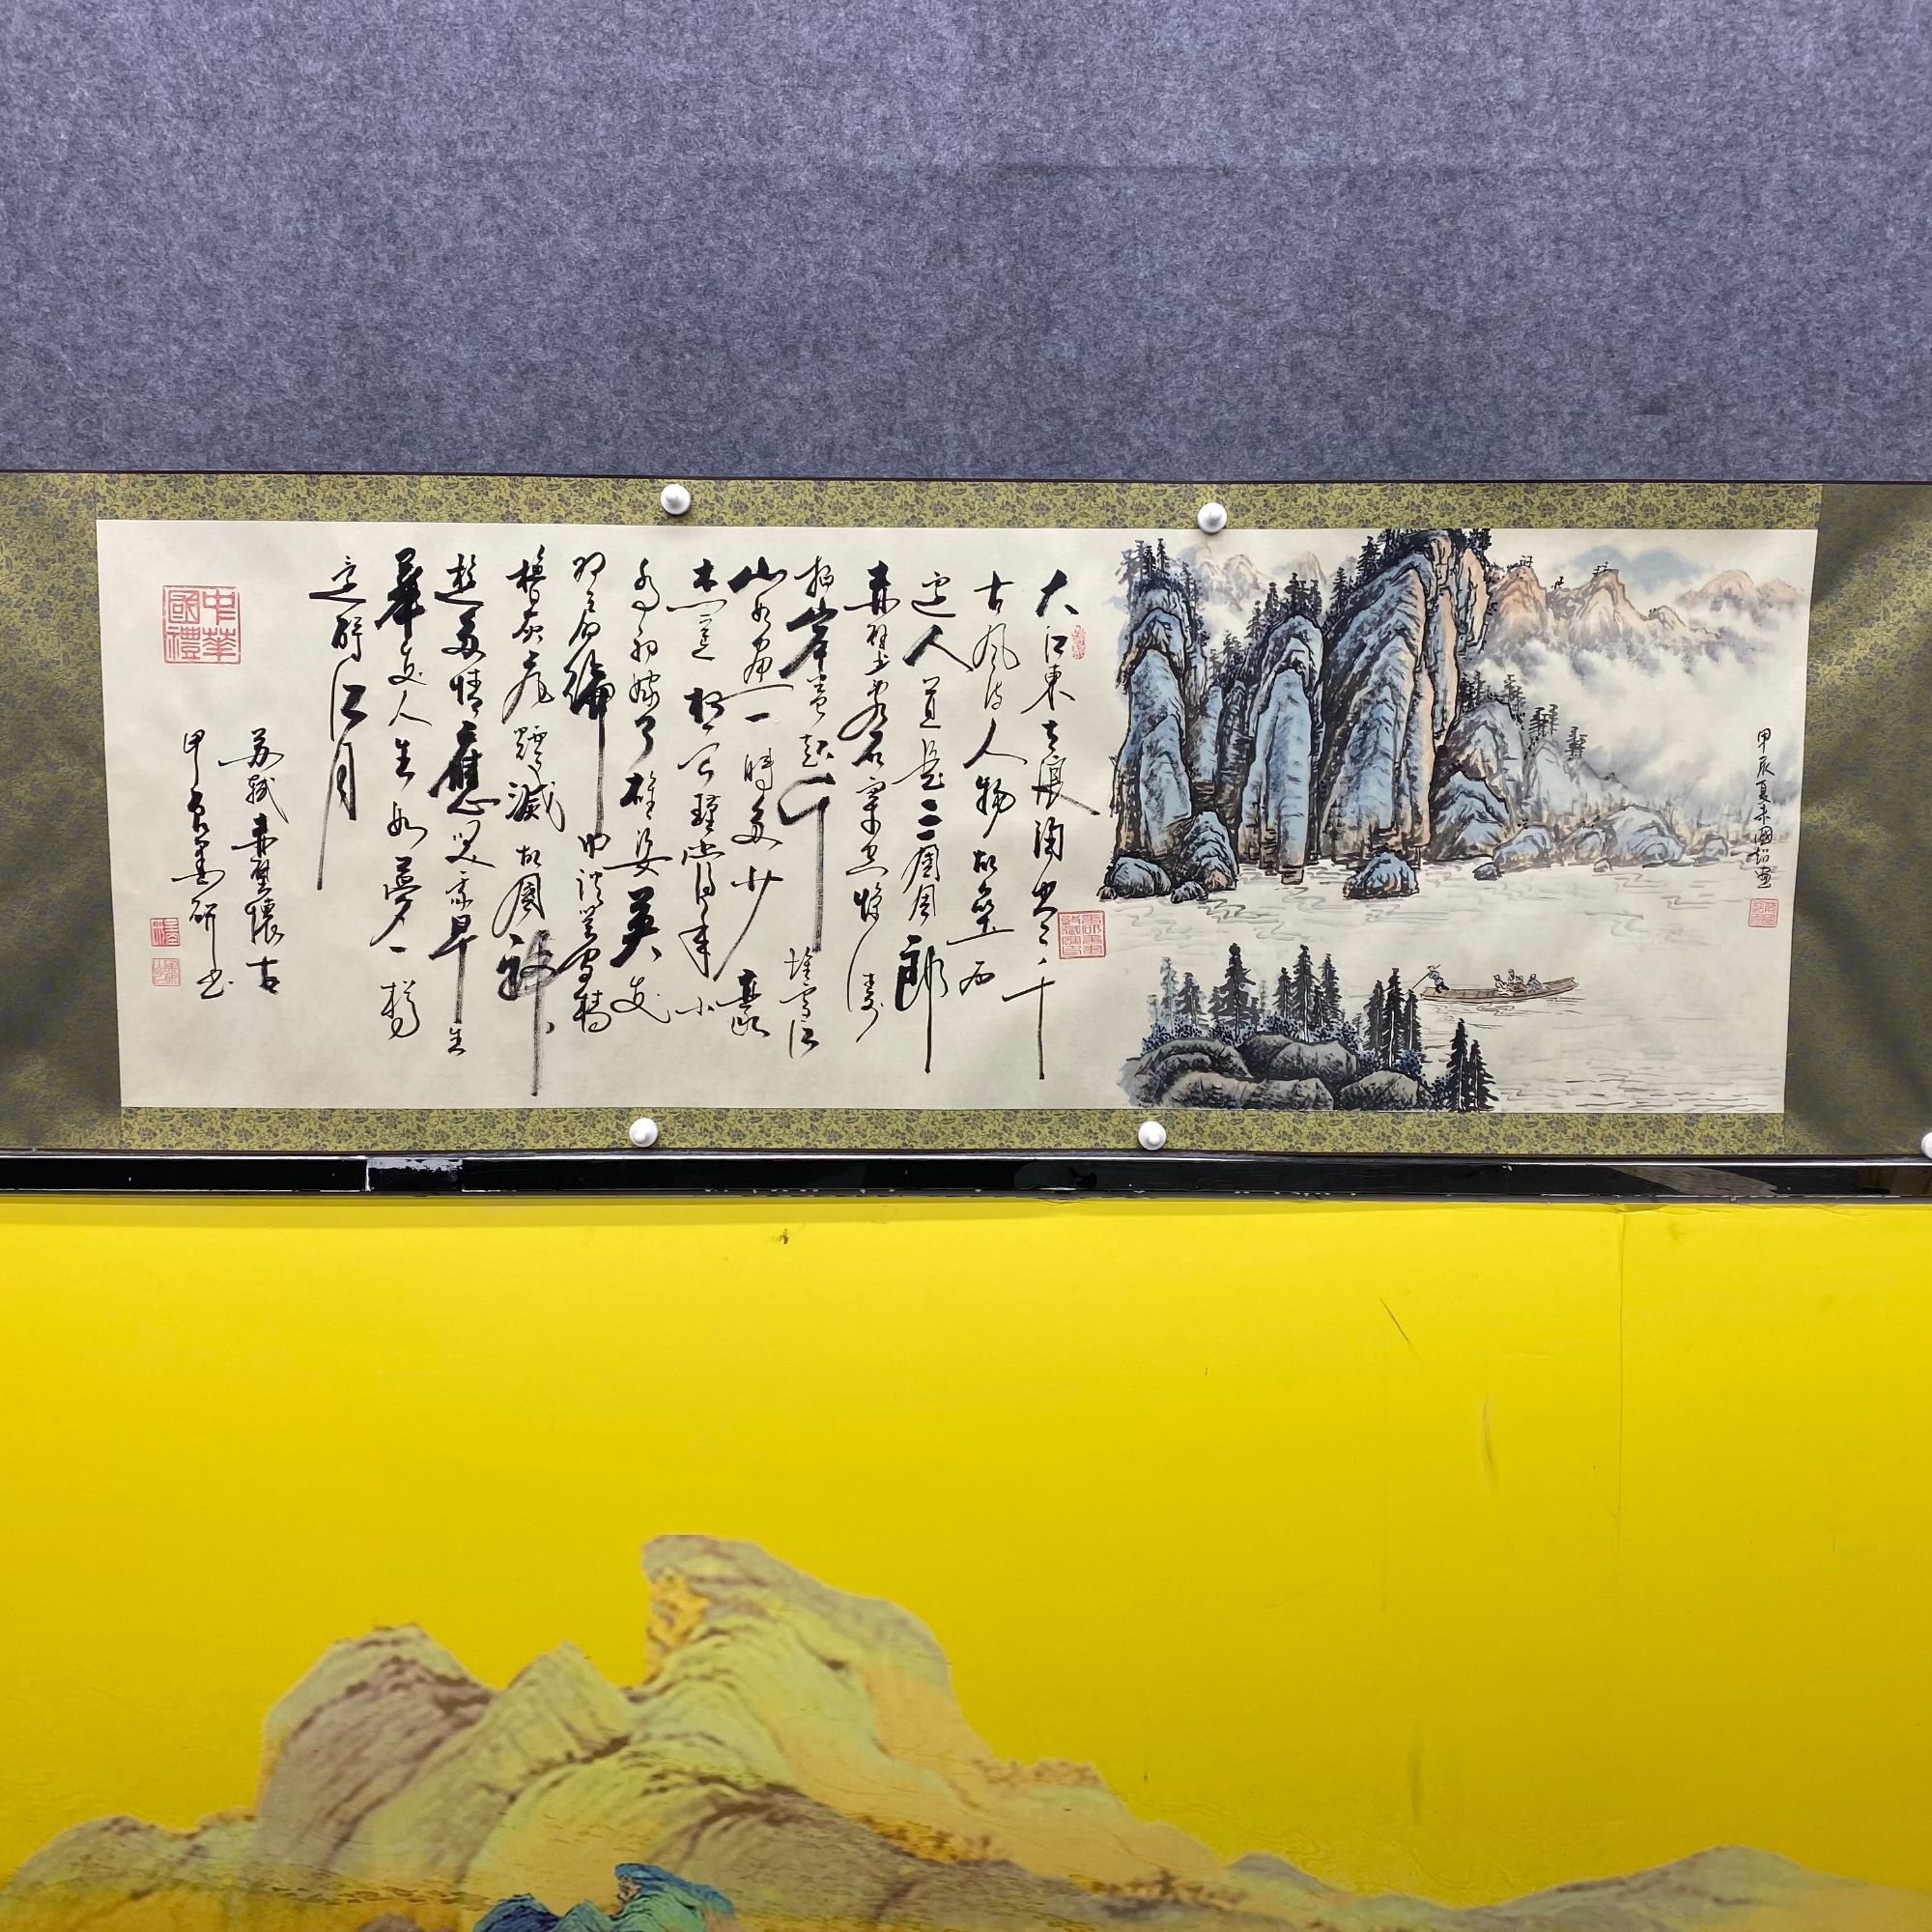 甲辰夏朱國畫
大江東去浪淘盡千
古風流人物故壘西
邊人道是三國周郎
赤壁亂石穿空驚濤
拍岸卷起千堆雪江
山如畫一時多少豪
杰遙想公瑾當年小
喬初嫁了雄姿英发
羽扇綸巾談笑間檣
櫓灰飛煙滅故國神
遊多情應笑我早生
華发人生如夢一樽
還酹江月
苏軾赤壁懷古
甲辰墨研书
中華國禮